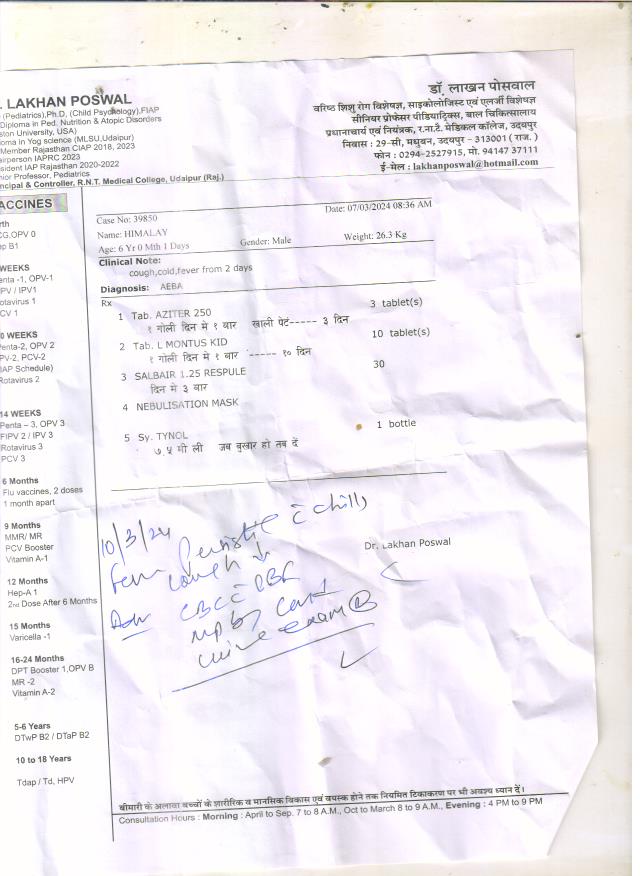 . LAKHAN POSWAL
(Pediatrics),Ph.D, (Child Psychology),FIAP
Diploma in Ped. Nutrition & Atopic Disorders
ston University, USA)
oma in Yog science (MLSU,Udaipur)
Member Rajasthan CIAP 2018, 2023
airperson IAPRC 2023
sident IAP Rajasthan 2020-2022
nior Professor, Pediatrics
ncipal & Controller, R.N.T. Medical College, Udaipur (Raj.)
डॉ. लाखन पोसवाल
वरिष्ठ शिशु रोग विशेषज्ञ, साइकोलोजिस्ट एवं एलर्जी विशेषज्ञ
सीनियर प्रोफेसर पीडियाट्रिक्स, बाल चिकित्सालय
प्रधानाचार्य एवं नियंत्रक, र.ना.टे. मेडिकल कॉलेज, उदयपुर
निवास : 29-सी, मधुबन, उदयपुर - 313001 ( राज. )
फोन : 0294-2527915, मो. 94147 37111
ई-मेल : lakhanposwal@hotmail.com
ACCINES
rth
CG,OPV 0
ep B1
WEEKS
enta -1, OPV-1
PV / IPV1
otavirus 1
CV 1
0 WEEKS
Penta-2, OPV 2
PV-2, PCV-2
IAP Schedule)
Rotavirus 2
14 WEEKS
Penta – 3, OPV 3
FIPV 2 / IPV 3
Rotavirus 3
PCV 3
6 Months
Flu vaccines, 2 doses
1 month apart
9 Months
MMR/ MR
PCV Booster
Vitamin A-1
12 Months
Hep-A 1
2nd Dose After 6 Months
15 Months
Varicella -1
16-24 Months
DPT Booster 1,OPV B
MR -2
Vitamin A-2
5-6 Years
DTwP B2 / DTaP B2
10 to 18 Years
Tdap / Td, HPV
Case No: 39850 Date: 07/03/2024 08:36 AM
Name: HIMALAY
Age: 6 Yr 0 Mth 1 Days Gender: Male Weight: 26.3 Kg
Clinical Note:
cough,cold,fever from 2 days
Diagnosis: AEBA
Rx
1 Tab. AZITER 250 3 tablet(s)
१ गोली दिन मे १ बार खाली पेट----- ३ दिन
2 Tab. L MONTUS KID 10 tablet(s)
१ गोली दिन मे १ बार ----- १० दिन
3 SALBAIR 1.25 RESPULE 30
दिन मे ३ बार
4 NEBULISATION MASK
5 Sy. TYNOL 1 bottle
७.५ मी ली जब बुखार हो तब दें
Dr. Lakhan Poswal
10/3/24
chills
cough ↓
Adv CBC
MP by card
urine exam
बीमारी के अलावा बच्चों के शारीरिक व मानसिक विकास एवं वयस्क होने तक नियमित टीकाकरण पर भी अवश्य ध्यान दें।
Consultation Hours : Morning : April to Sep. 7 to 8 A.M., Oct to March 8 to 9 A.M., Evening : 4 PM to 9 PM